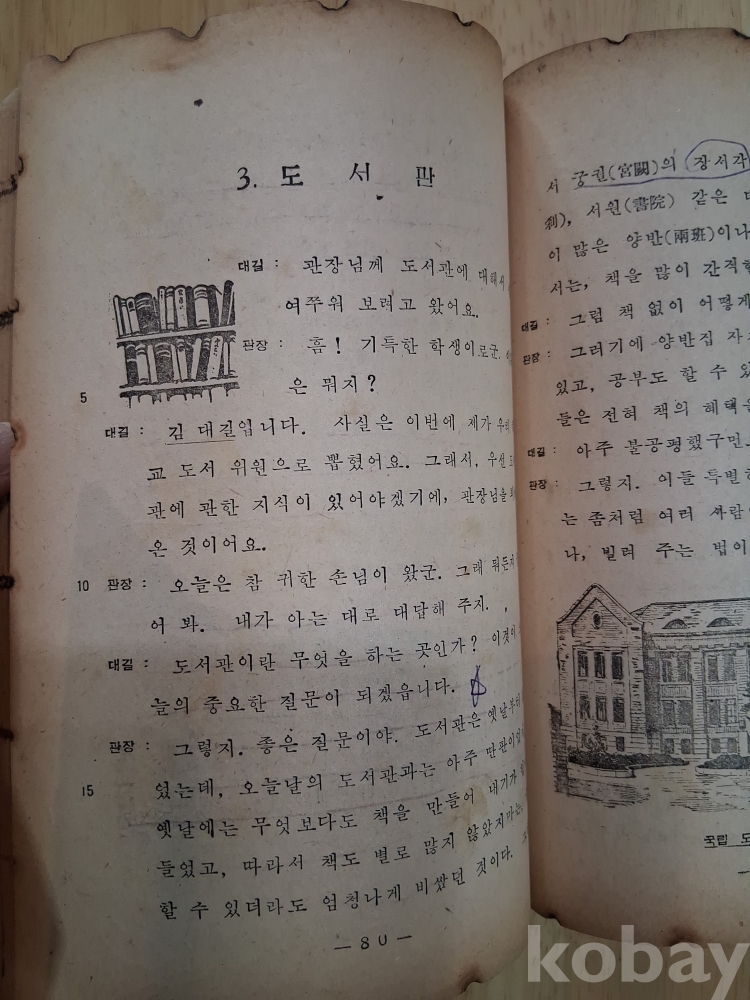 3. 도 서 관
대길 : 관장님께 도서관에 대해서
여쭈워 보려고 왔어요.
관장 : 흠! 기특한 학생이로군.
5 은 뭐지?
대길 : 김 대길입니다. 사실은 이번에 제가 우리
교 도서 위원으로 뽑혔어요. 그래서, 우선 도
관에 관한 지식이 있어야겠기에, 관장님을
온 것이어요.
10 관장 : 오늘은 참 귀한 손님이 왔군. 그래 뭐든지
어 봐. 내가 아는 대로 대답해 주지.
대길 : 도서관이란 무엇을 하는 곳인가? 이것이
늘의 중요한 질문이 되겠읍니다.
관장 : 그렇지. 좋은 질문이야. 도서관은 옛날부터
15 었는데, 오늘날의 도서관과는 아주 딴판이었
옛날에는 무엇보다도 책을 만들어 내기가
들었고, 따라서 책도 별로 많지 않았지마는,
할 수 있더라도 엄청나게 비쌌던 것이다.
— 80 —
서 궁궐(宮闕)의 장서각
刹), 서원(書院) 같은
이 많은 양반(兩班)이나
서는, 책을 많이 간직하
대길 : 그럼 책 없이 어떻게
관장 : 그러기에 양반집 자
있고, 공부도 할 수 있
들은 전혀 책의 혜택을
대길 : 아주 불공평했구먼
관장 : 그렇지. 이들 특별한
는 좀처럼 여러 사람
나, 빌려 주는 법이
국립 도
kobay